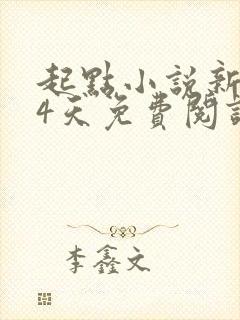 起點小說新
4天免費閱
李鑫文